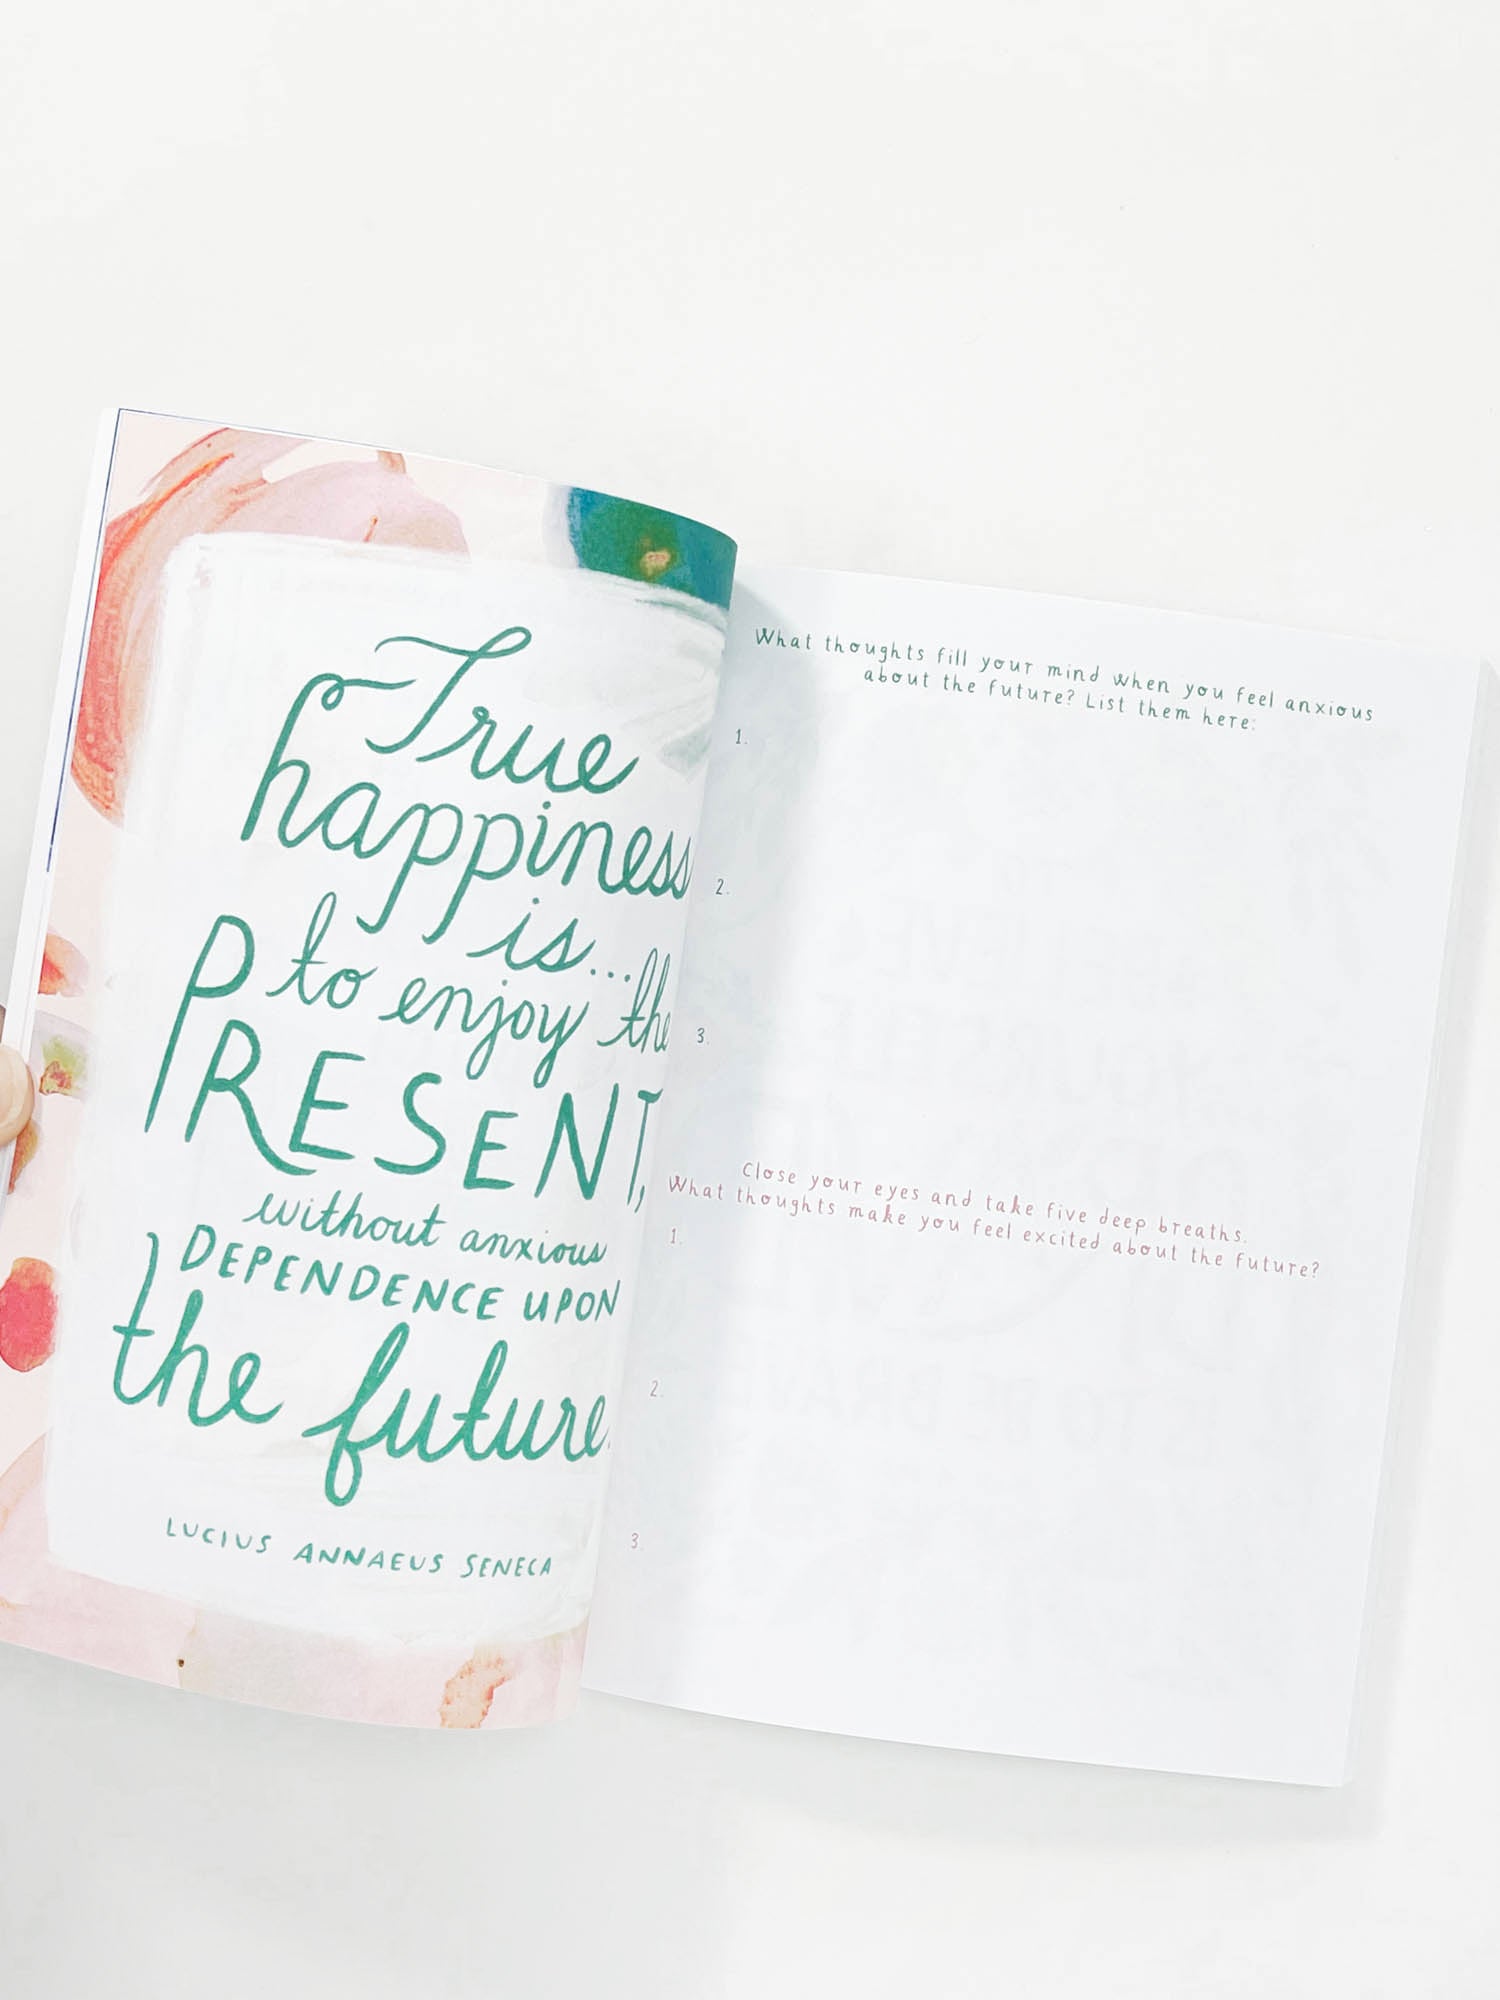 True
happiness
is...
to enjoy the
PRESENT,
without anxious
DEPENDENCE UPON
the future.
LUCIUS ANNAEUS SENECA
What thoughts fill your mind when you feel anxious
about the future? List them here:
1.
2.
3.
Close your eyes and take five deep breaths.
What thoughts make you feel excited about the future?
1.
2.
3.